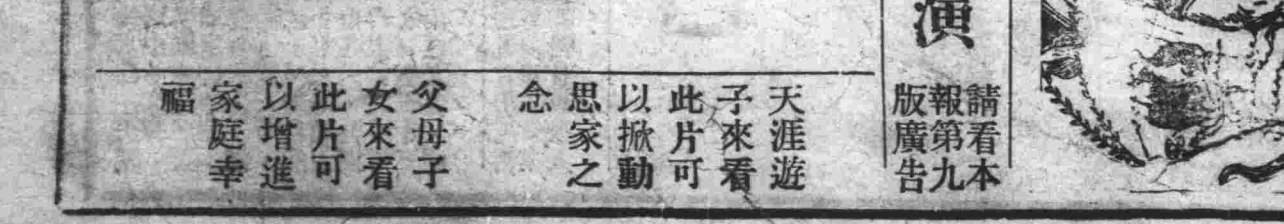 演
請看本
報第九
版廣告
天涯遊
子來看
此片可
以掀動
思家之
念
父母子
女來看
此片可
以增進
家庭幸
福